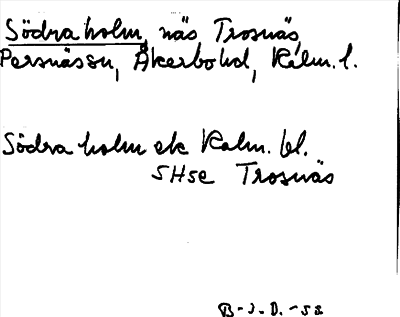 Södra holm, näs Trosnäs,
Persnäs sn, Åkerbo hd, Kalm. l.
Södra holm ek Kalm. bl.
SHSe Trosnäs
B-J.D.-58